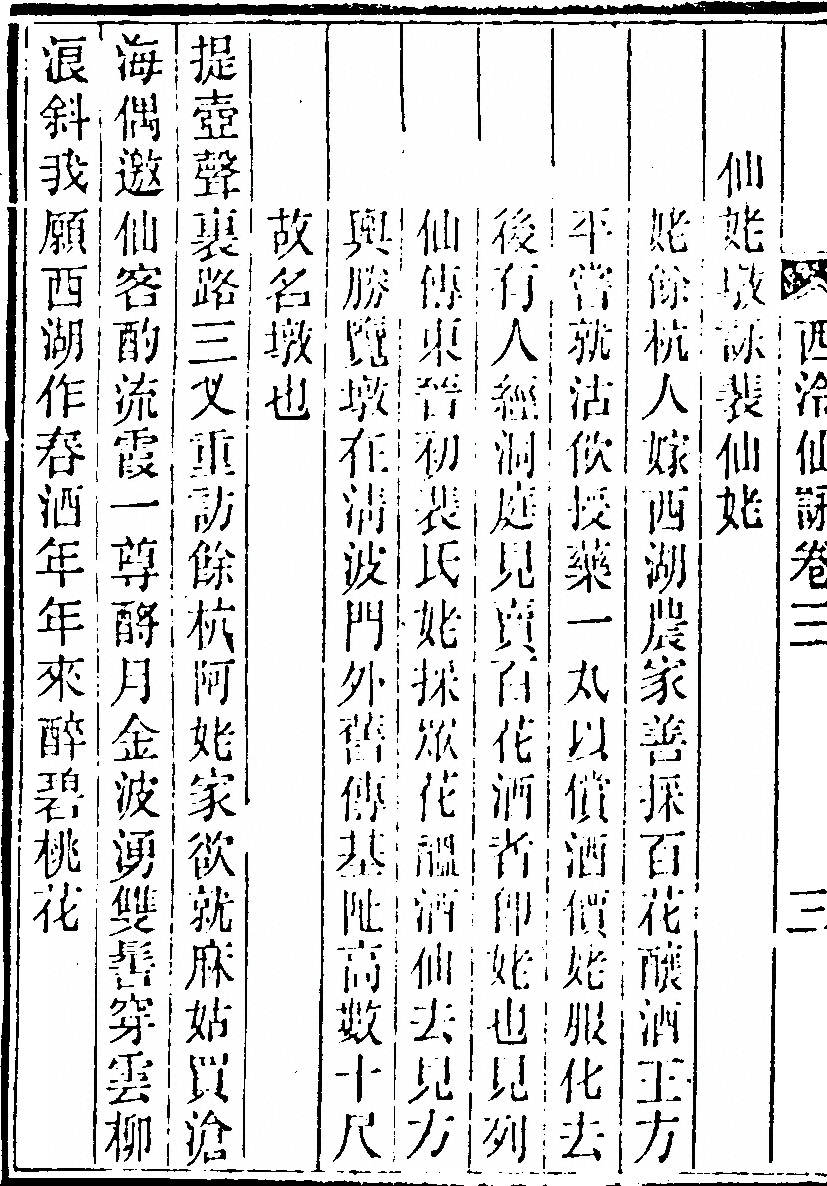 西泠仙詠卷三
三
仙姥墩詠裴仙姥
姥餘杭人嫁西湖農家善採百花釀酒王方
平嘗就沽飲授藥一丸以償酒價姥服化去
後有人經洞庭見賣百花酒者卽姥也見列
仙傳東晉初裴氏姥採眾花醞酒仙去見方
輿勝覽墩在淸波門外舊傳基阯高數十尺
故名墩也
提壺聲裏路三叉重訪餘杭阿姥家欲就麻姑買滄
海偶邀仙客酌流霞一尊酹月金波湧雙髻穿雲柳
浪斜我願西湖作春酒年年來醉碧桃花